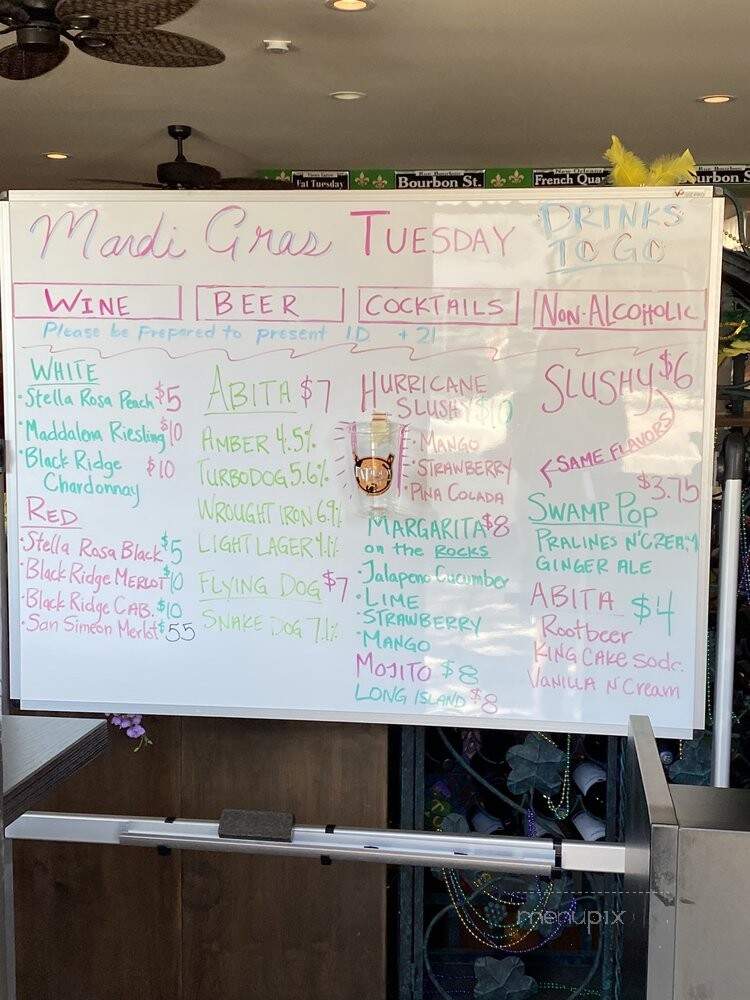 Fat Tuesday
Bourbon St.
French Quar
urbon S
Mardi Gras TUESDAY
DRINKS
TO GO
WINE
BEER
COCKTAILS
NON-ALCOHOLIC
Please be prepared to present ID +21
WHITE
·Stella Rosa Peach $5
·Maddalena Riesling $10
·Black Ridge $10
Chardonnay
RED
·Stella Rosa Black $5
·Black Ridge MERLOT $10
·Black Ridge CAB. $10
·San Simeon Merlot $55
ABITA $7
AMBER 4.5%
TURBODOG 5.6%
WROUGHT IRON 6.9%
LIGHT LAGER 4.1%
FLYING DOG $7
SNAKE DOG 7.1%
HURRICANE
SLUSHY $10
·MANGO
·STRAWBERRY
·PINA COLADA
MARGARITA $8
on the ROCKS
·Jalapeno Cucumber
·LIME
·STRAWBERRY
·MANGO
MOJITO $8
LONG ISLAND $8
SLUSHY $6
SAME FLAVORS
$3.75
SWAMP POP
PRALINES N'CREAM
GINGER ALE
ABITA $4
Rootbeer
KING CAKE Soda
VANILLA N Cream
menupix